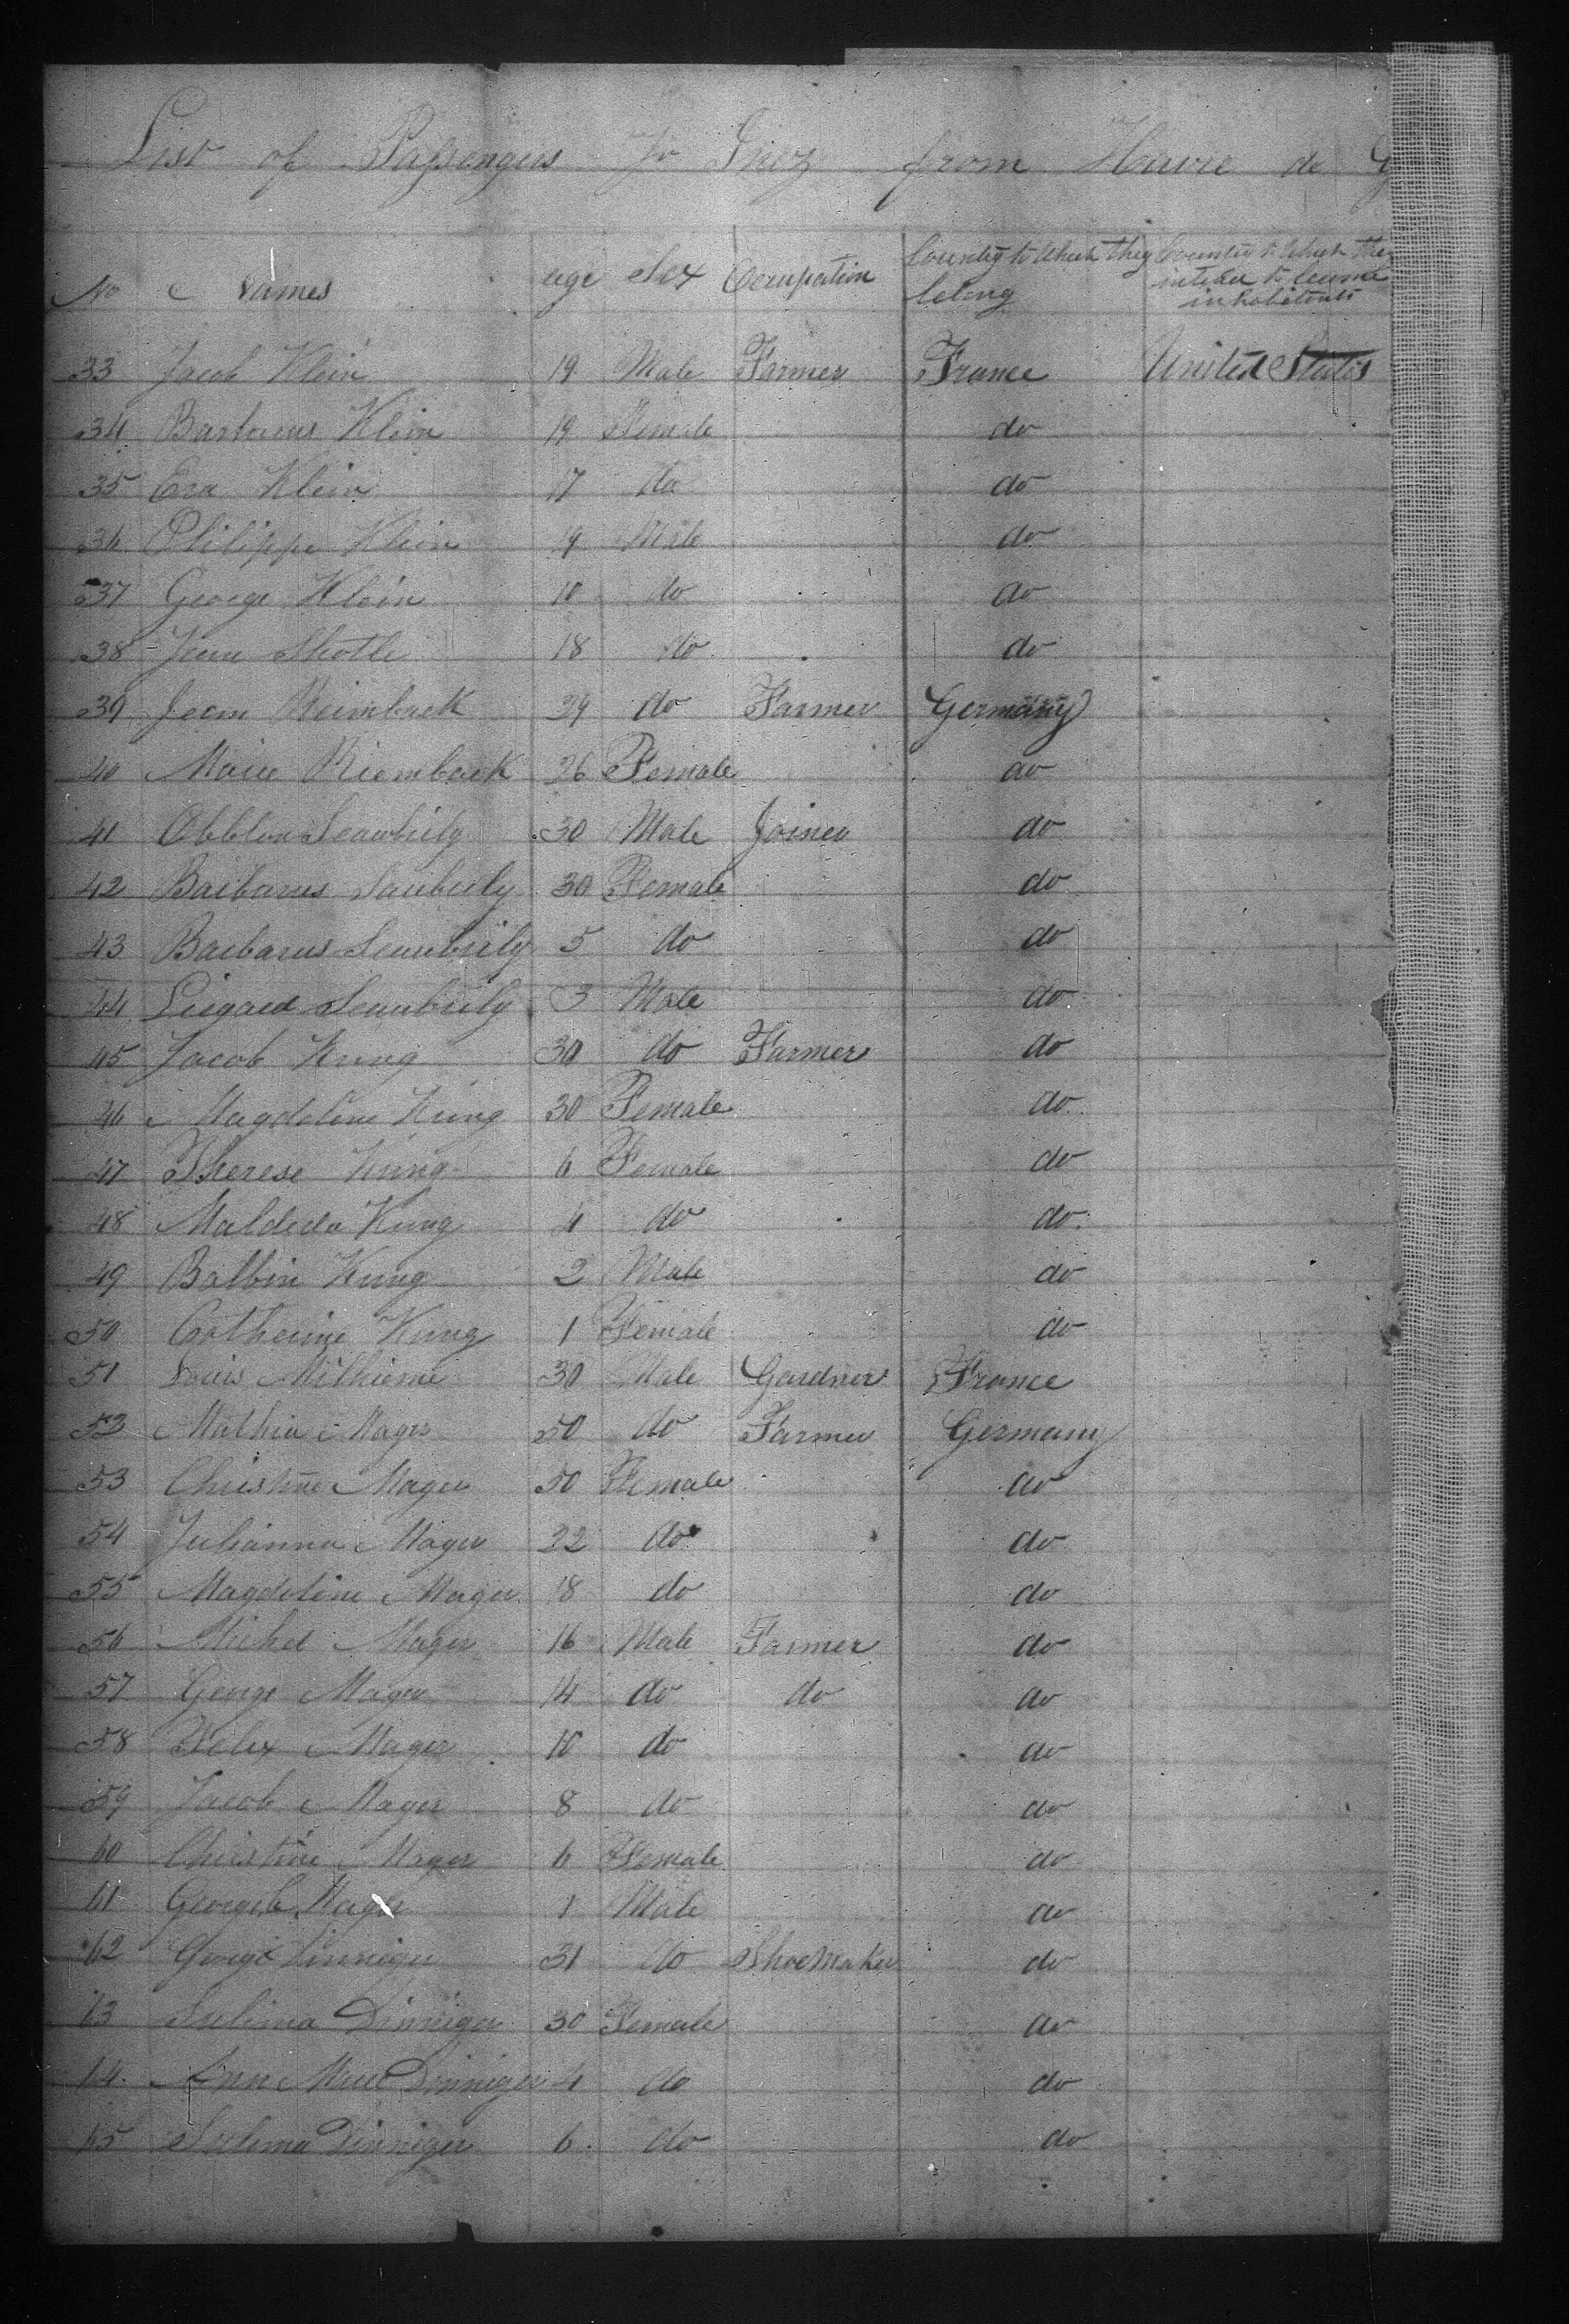 List of Passengers Pr Inez from Havre de G
No Names age Sex Occupation Country to Which they belong Country to Which they intend to become inhabitants
33 Jacob Klein 19 Male Farmer France United States
34 Barbarus Klein 19 Female do
35 Eva Klein 17 do do
36 Philippe Klein 9 Male do
37 George Klein 10 do do
38 Jean Shotle 18 do do
39 Jean Reimback 29 do Farmer Germany
40 Marie Riemback 26 Female do
41 30 Male Joiner do
42 Barbarus 30 Female do
43 Barbarus 5 do do
44 3 Male do
45 Jacob Kung 30 do Farmer do
46 Magdeline Kung 30 Female do
47 Therese Kung 6 Female do
48 Kung 4 do do
49 Balbin Kung 2 Male do
50 Catherine Kung 1 Female do
51 Louis 30 Male Gardner France
52 Mathia Mager 50 do Farmer Germany
53 Christine Mager 50 Female do
54 Julianna Mager 22 do do
55 Magdeline Mager 18 do do
56 Michel Mager 16 Male Farmer do
57 George Mager 14 do do do
58 Felix Mager 10 do do
59 Jacob Mager 8 do do
60 Christine Mager 6 Female do
61 Mager 1 Male do
62 George Dinniger 31 do ShoeMaker do
63 Dinniger 30 Female do
64 Ann Marie Dinniger 4 do do
65 Dinniger 6 do do